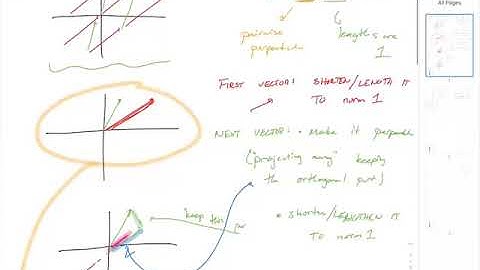 All Pages
pairwise
lengths are
1
FIRST VECTOR: SHORTEN/LENGTH IT
TO norm 1
NEXT VECTOR: • make it perpendic
("projecting away" keeping
the orthogonal part)
keep this
• SHORTEN/LENGTHEN IT
TO norm 1